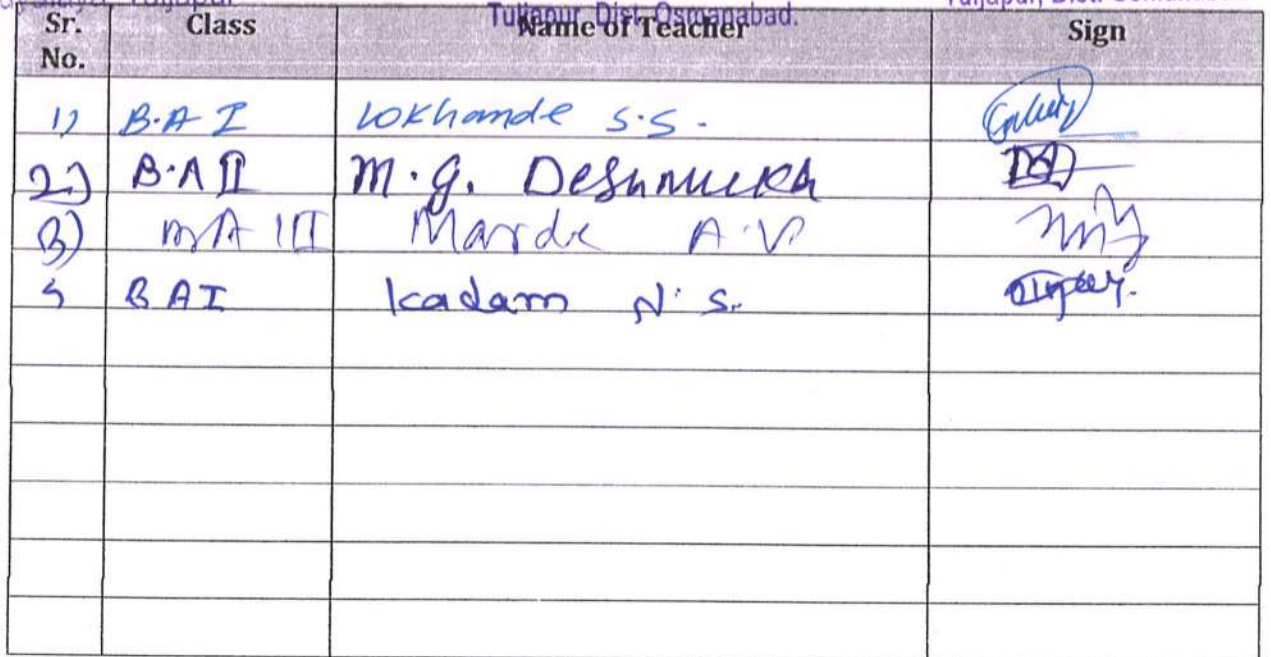 Tuljapur
Tuljapur, Dist. Osmanabad.
Sr. No. Class Name of Teacher Sign
1) B.A I Lokhande S.S.
2) B.A II M.G. Deshmukh
3) A III Marde A.V
BAI Kadam N.S.